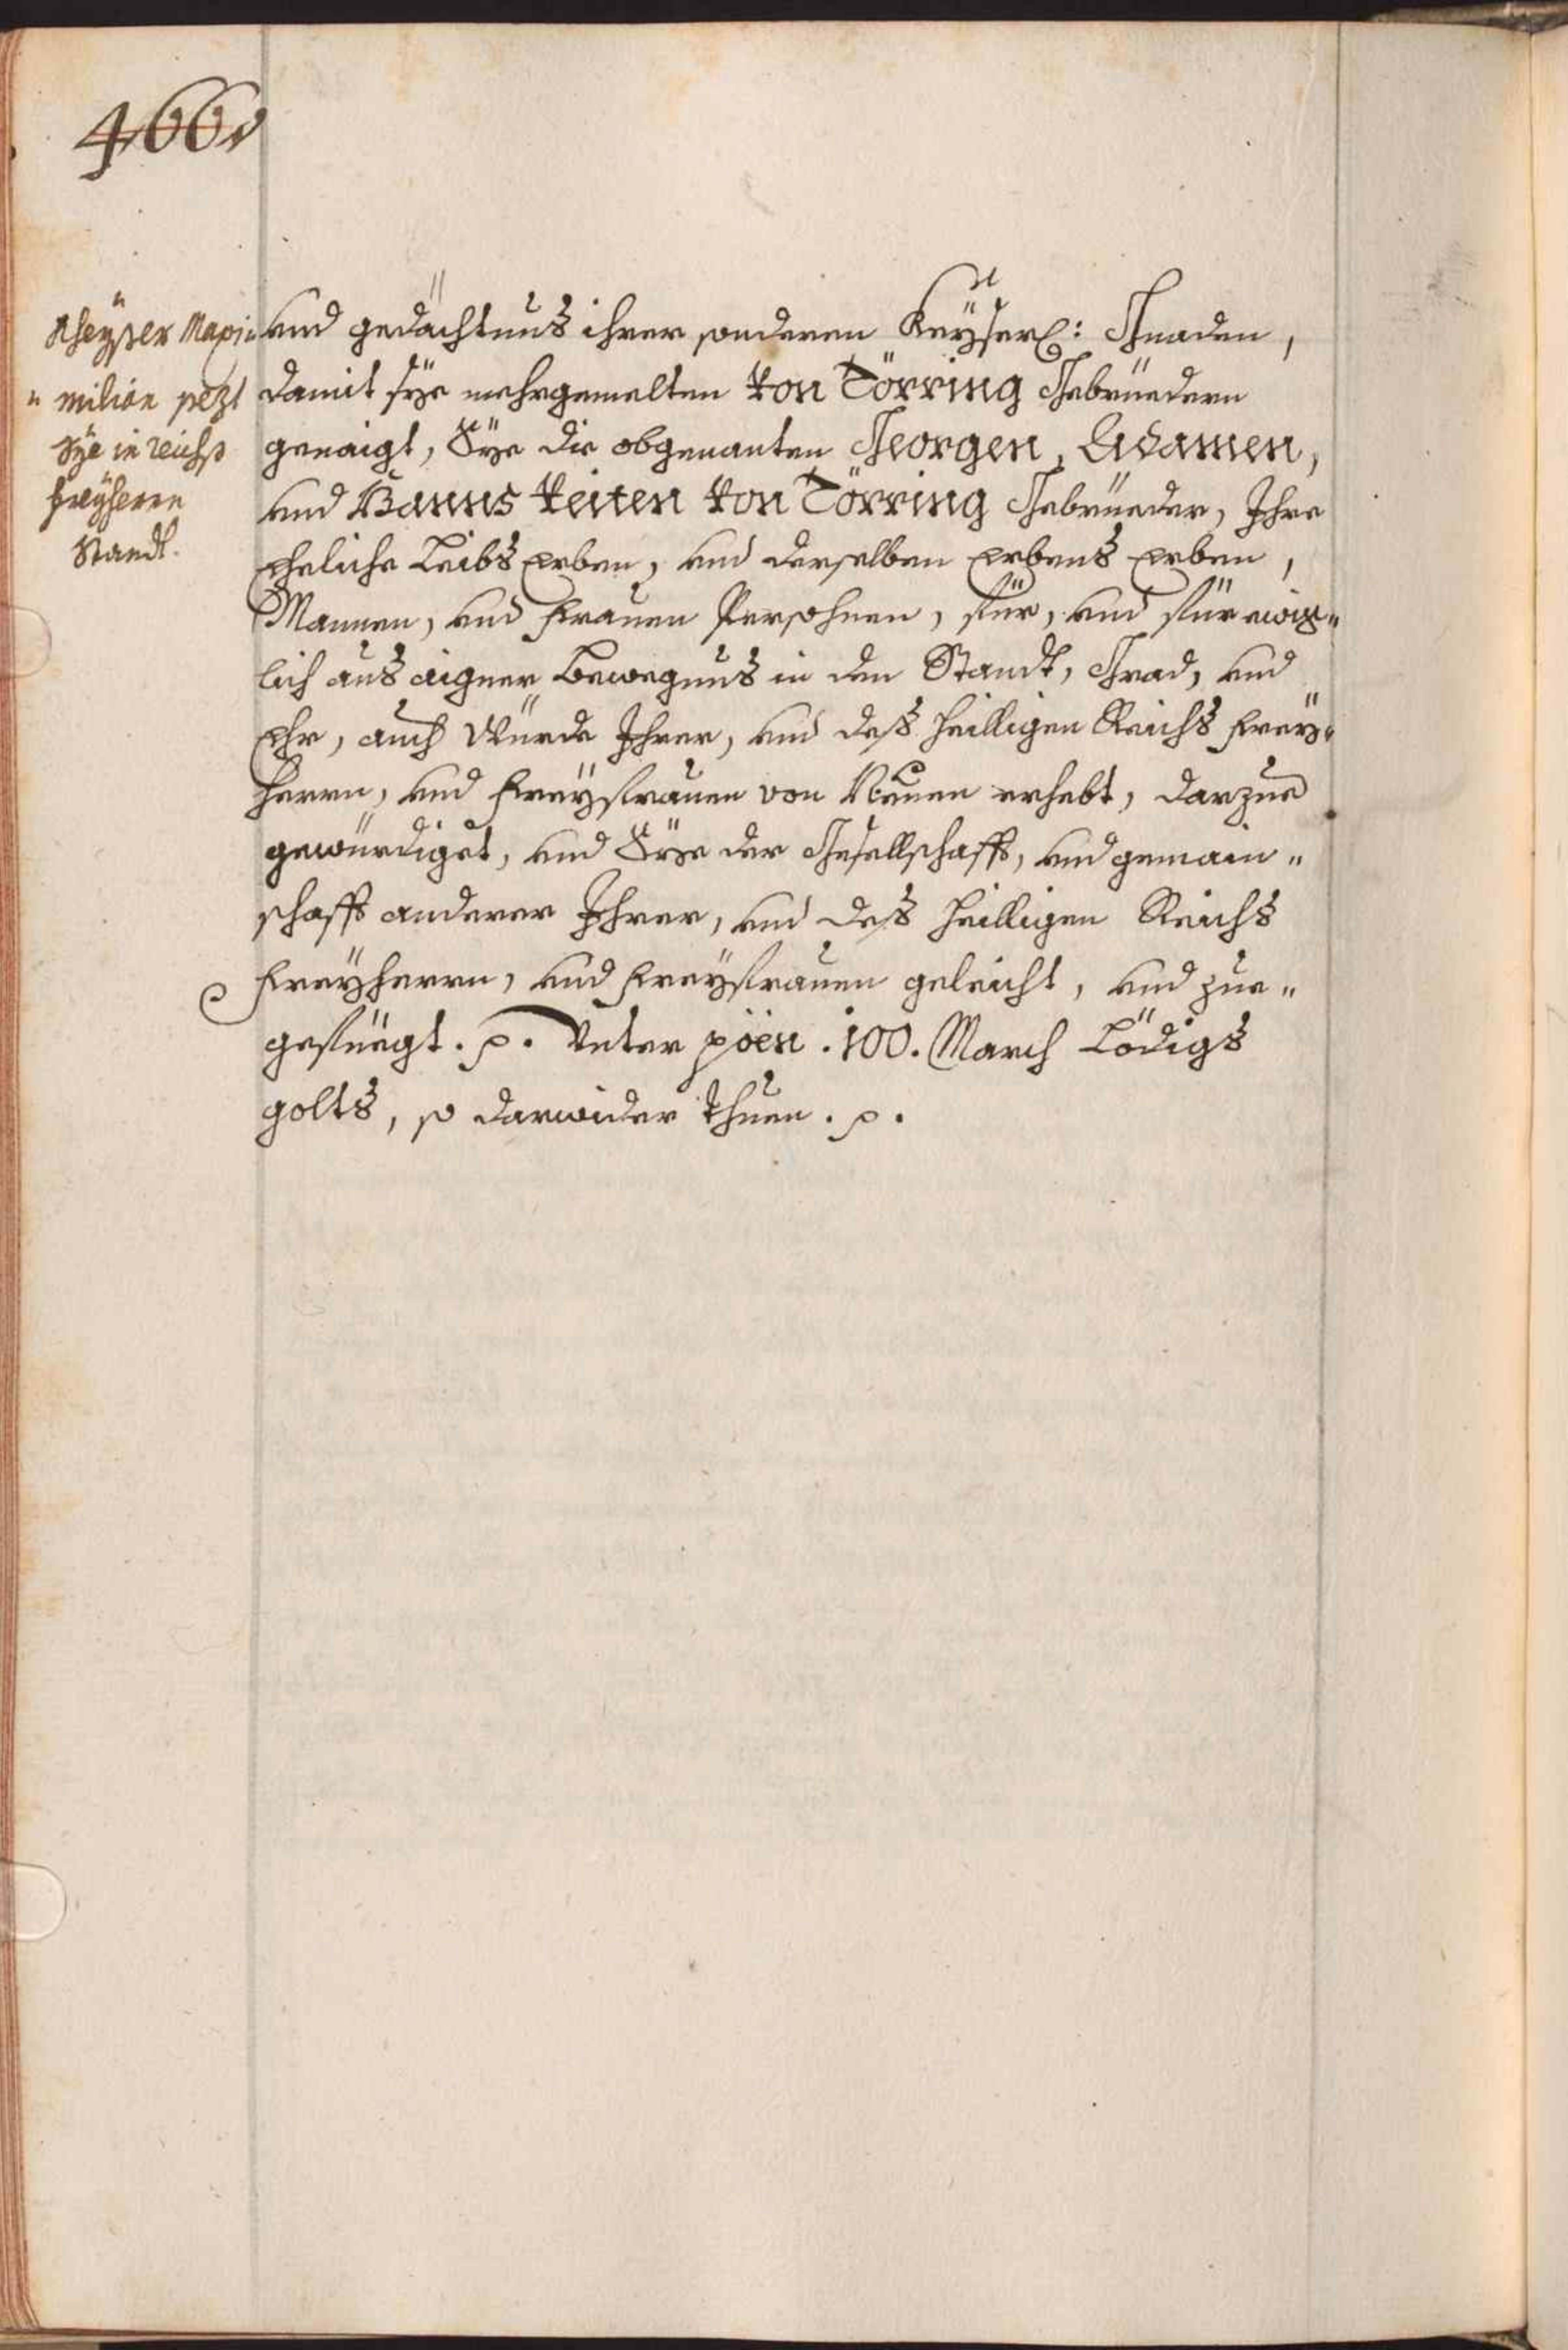 466v
Kheyßer Maxi=
= milian sezt
Sÿe in reichß
freÿherrn
Standt.
vnd gedächtnus ihrer sonderen Keÿserl: Gnaden,
damit sÿe mehrgemelten Von Törring Gebrüedern
genaigt, Sÿe die obgenanten Georgen, Adamen,
vnd Hanns Veiten Von Törring Gebrüeder, Ihre
eheliche Leibs Erben, vnd derselben Erbens Erben,
Mannen, vnd Frauen Persohnen, für, vnd für ewig=
lich aus aigner Bewegnus in den Standt, Grad, vnd
Ehr, auch Würde Ihrer, vnd deß Heilligen Reichs Freÿ=
herrn, vnd Freÿfrauen von Neuen erhebt, darzue
gewürdiget, vnd Sÿe der Gesellschafft, vnd gemain=
schafft anderer Ihrer, vnd deß Heilligen Reichs
Freÿherrn, vnd Freÿfrauen geleicht, vnd zue=
gefüegt. p. Vnter pöen .100. March Lödigs
golts, so darwider thuen. p.